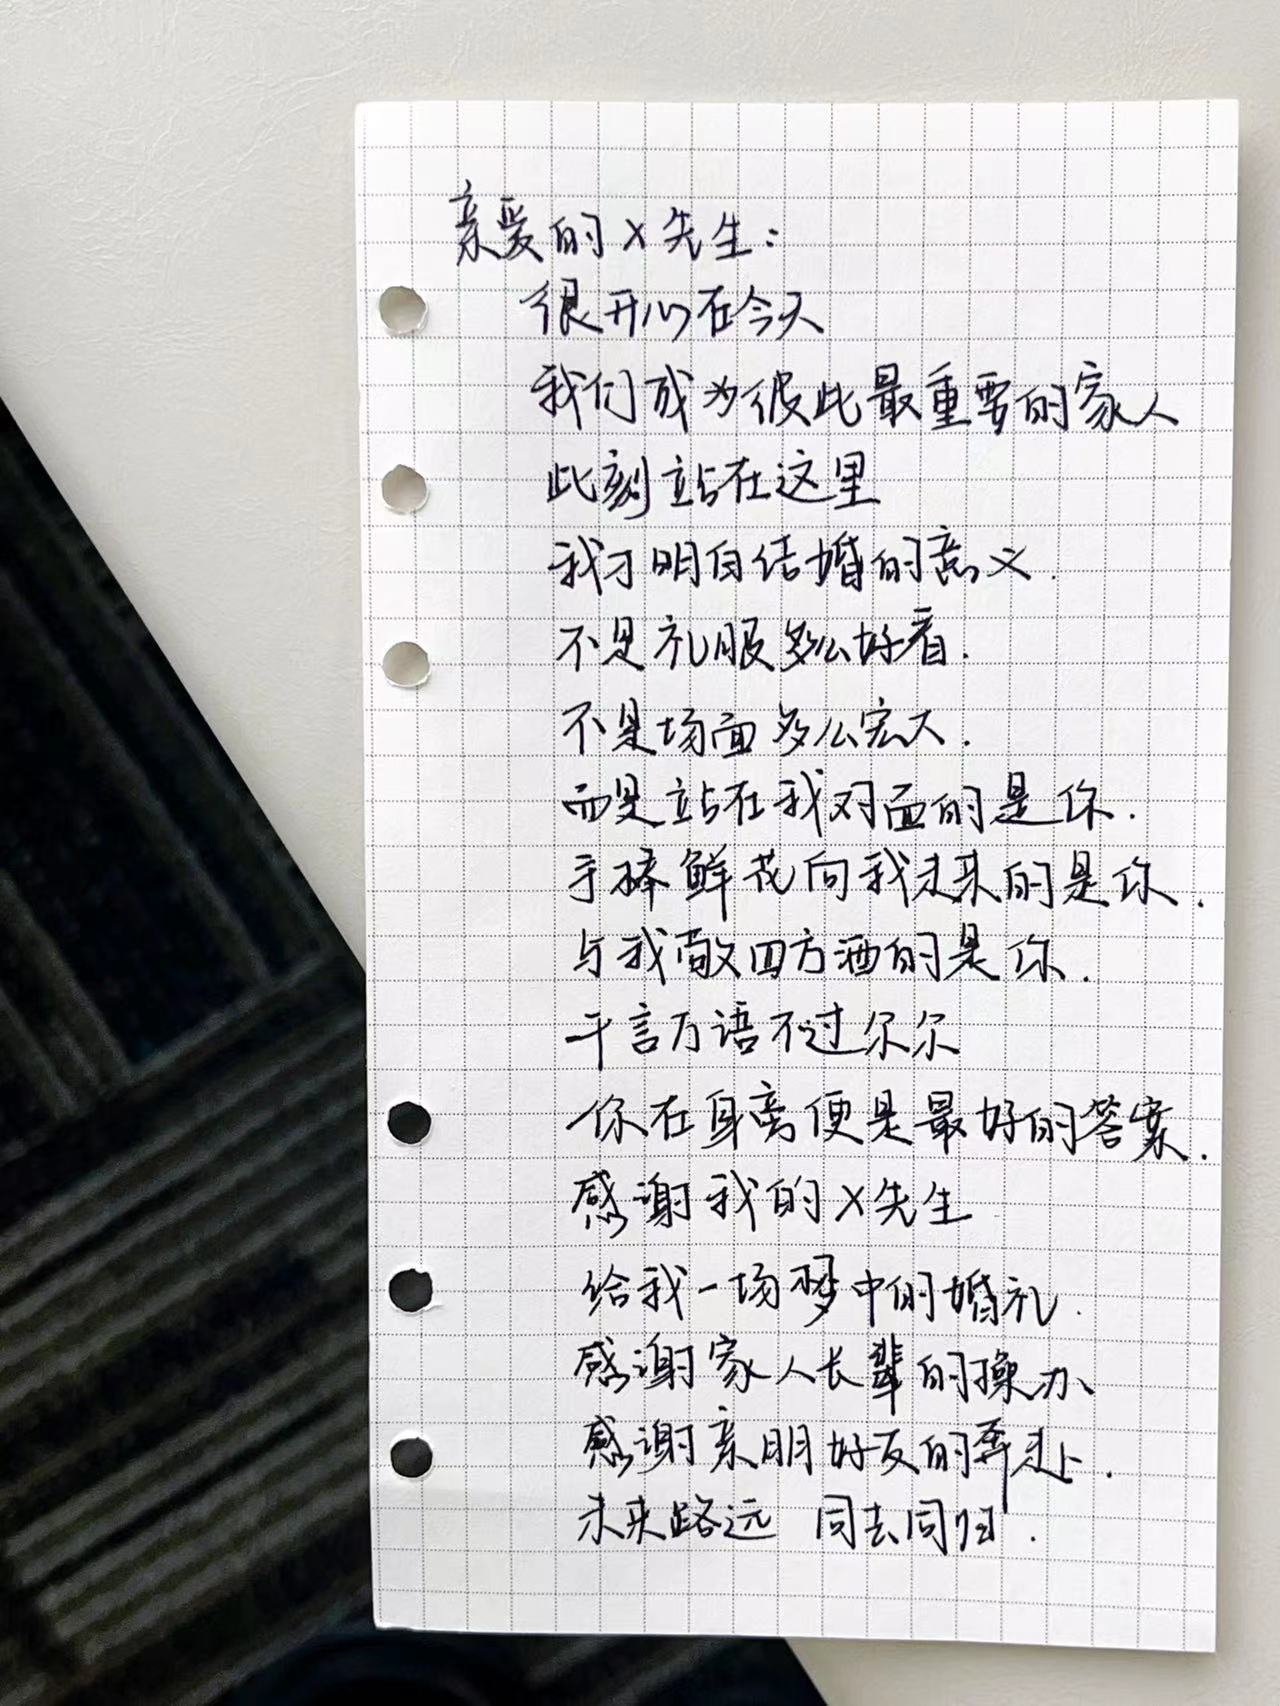 亲爱的X先生：
很开心在今天
我们成为彼此最重要的家人
此刻站在这里
我才明白结婚的意义.
不是礼服多么好看.
不是场面多么宏大.
而是站在我对面的是你.
手捧鲜花向我未来的是你.
与我敬四方酒的是你.
千言万语不过尔尔
你在身旁便是最好的答案.
感谢我的X先生
给我一场梦中的婚礼.
感谢家人长辈的操办、
感谢亲朋好友的奔赴.
未来路远 同去同归.